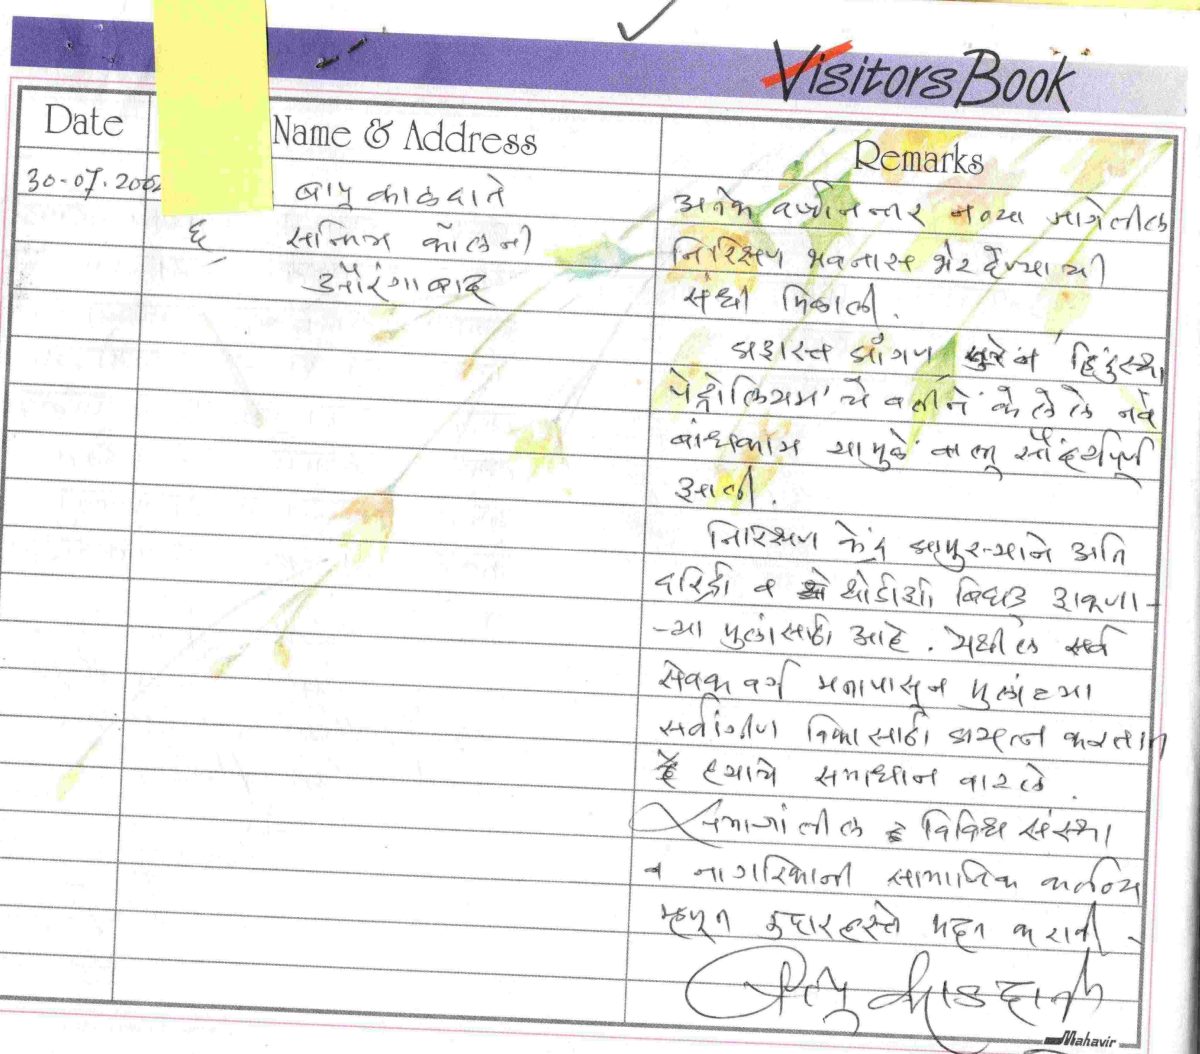 Visitors Book
Date
Name & Address
Remarks
30-07-2002
बापु काळदाते
६
समित्र कॉलनी
औरंगाबाद
अनेक वर्षानन्तर नव्या जागेतील
निरिक्षण भवनास भेट देण्याची
संधी मिळाली.
प्रशस्त प्रांगण हिंदुस्था
पेट्रोलियम' चे वतीने केलेले नवे
बांधकाम यामुळे वास्तू सौंदर्यपूर्ण
झाली.
निरिक्षण केंद्र प्रामुख्याने अति
दरिद्री व थोडीशी बिघाड झालेल्या-
-या मुलांसाठी आहे. येथील सर्व
सेवक वर्ग मनापासून मुलांच्या
सर्वांगीण विकासाठी प्रयत्न करतात
हे ह्याचे समाधान वाटले.
समाजातील विविध संस्था
व नागरिकांनी सामाजिक कर्तव्य
म्हणून उदारहस्ते मदत करावी-
बापु काळदाते
Mahavir